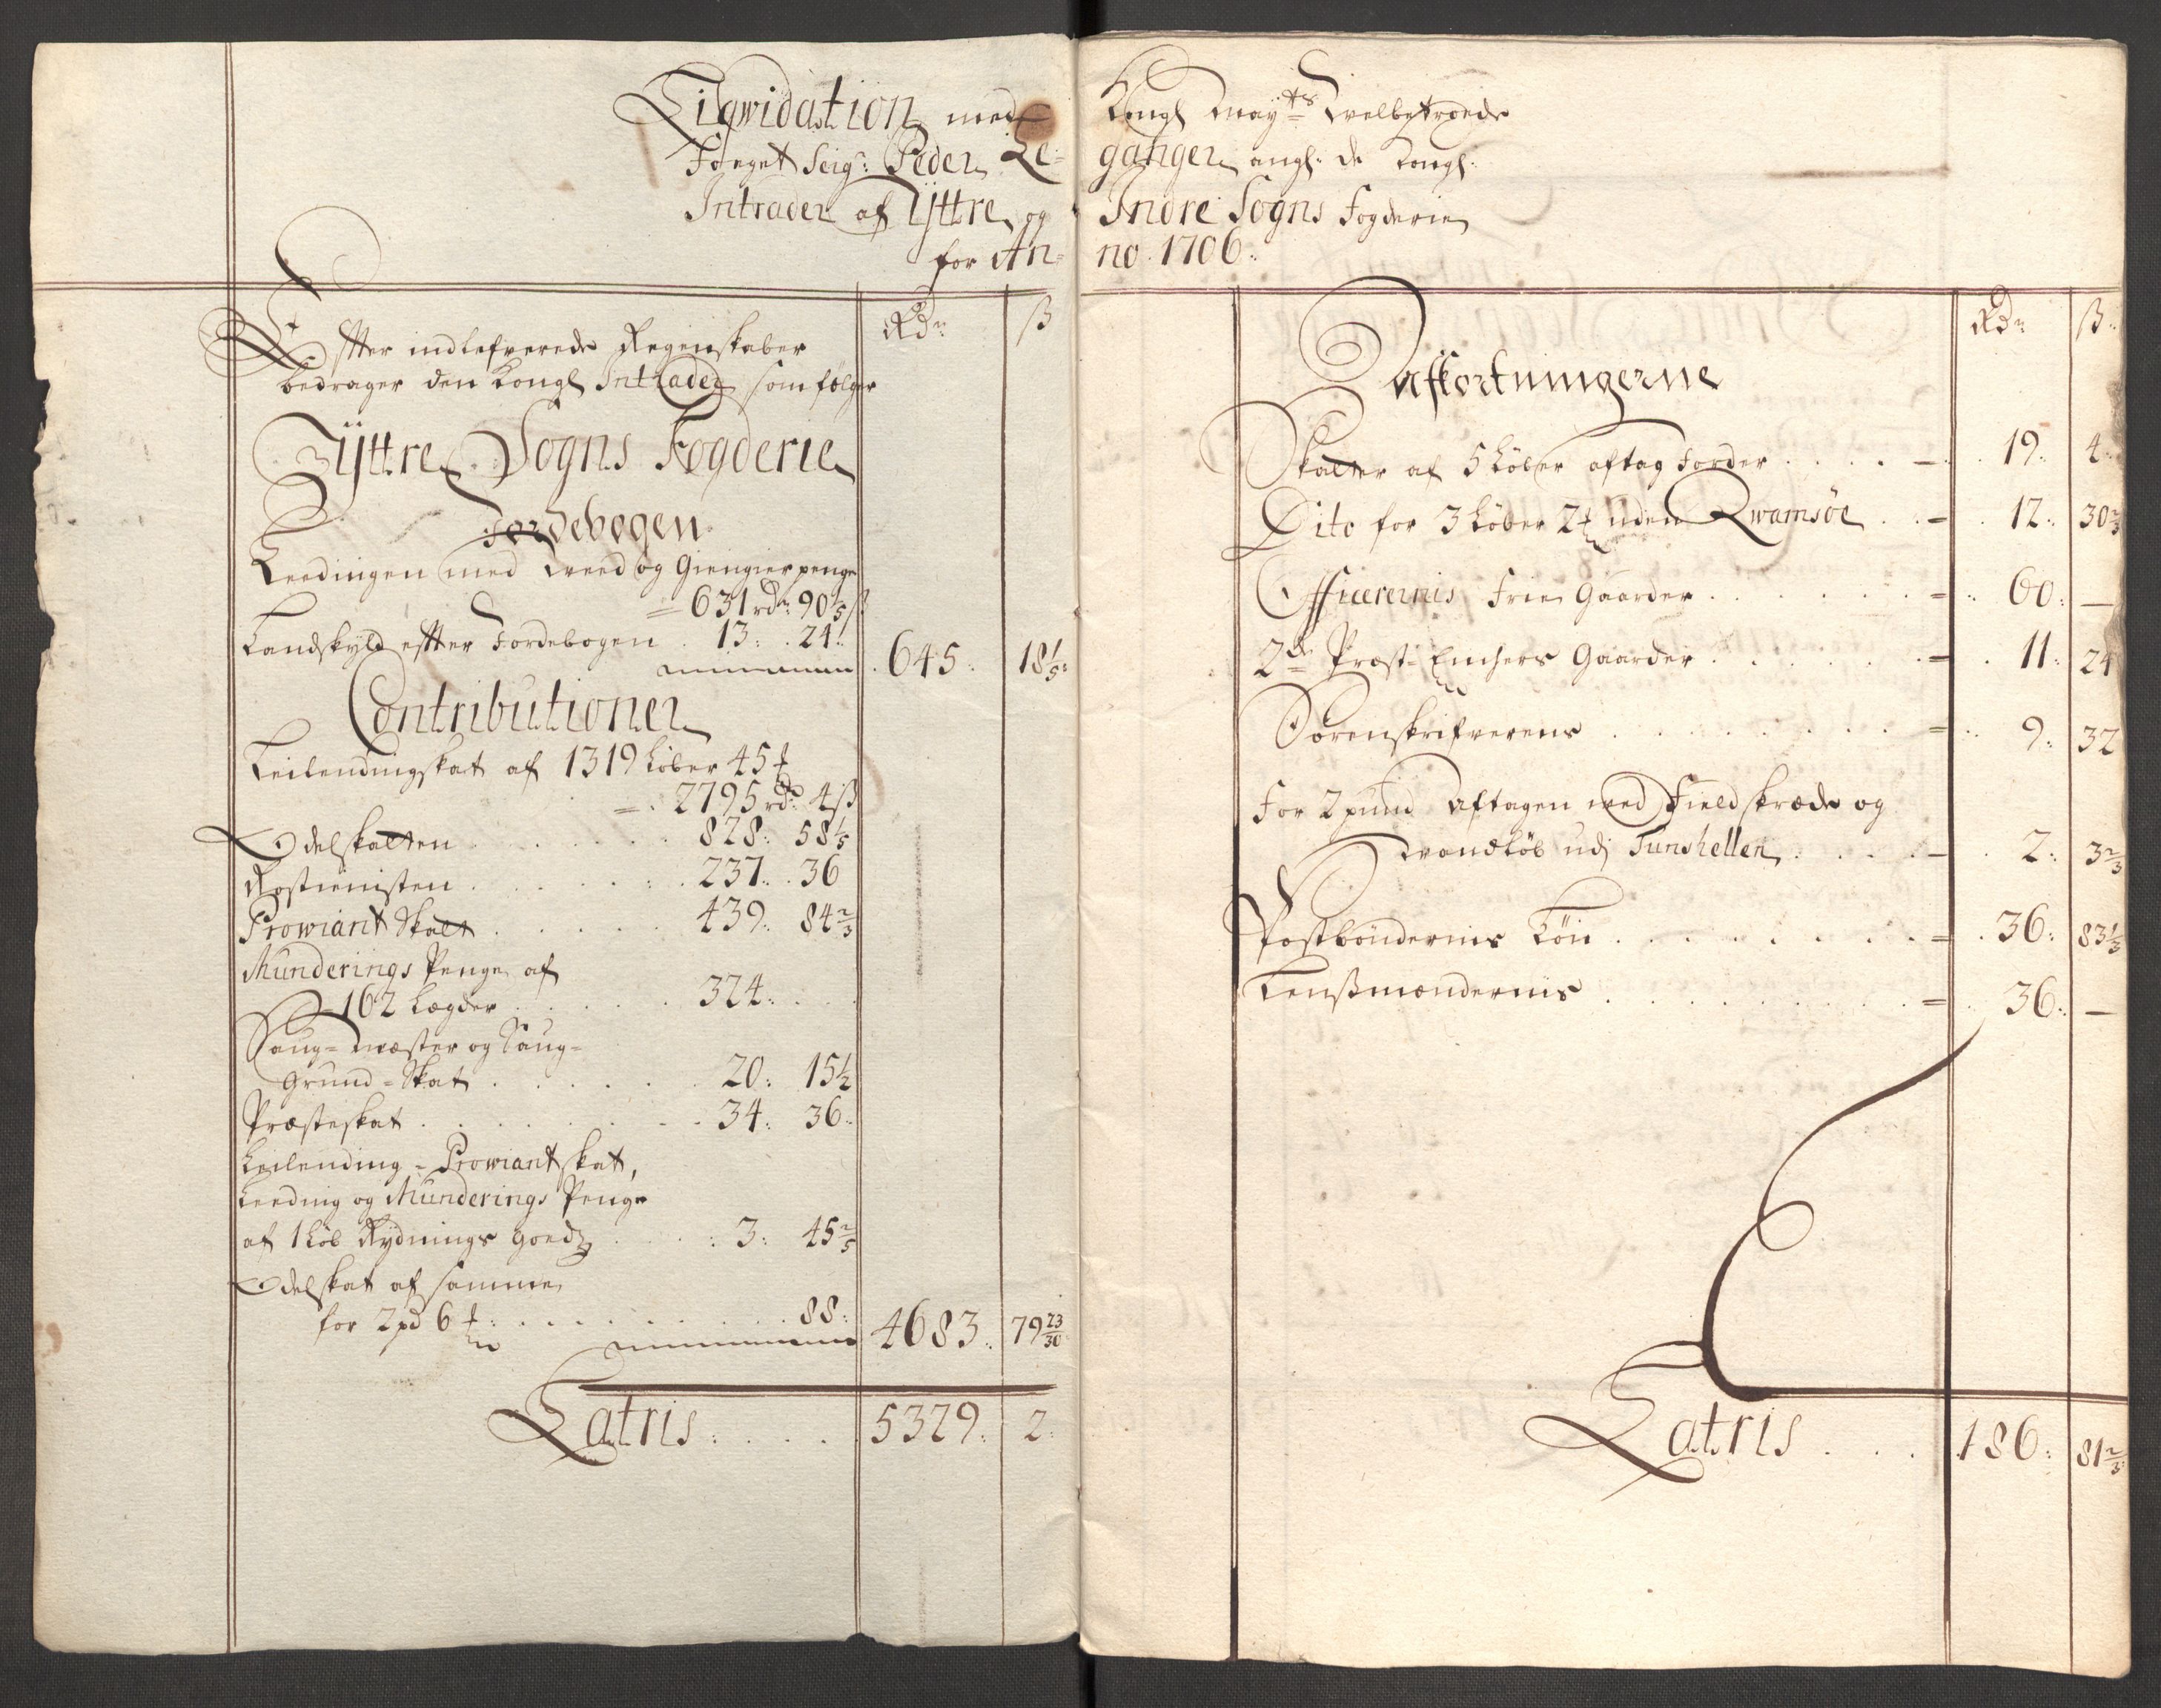 Liqwidation med Kongl May:ts Welbetroede
Foeget Seig:r Peder Leganger angl: de Kongl:
Intrader af Yttre og Indre Sogns Fogderie
for Anno 1706:
Rdr ß
Effter indlefverede Regenskaber
bedrager den Kongl Intrader som følger
Yttre Sogns Fogderie
Jordebogen
Leedingen med Weed og Giengierpenge
= 631 rdr: 90 1/5 ß
Landskyld effter Jordebogen . 13: . 24: 645: 18 1/5:
Contributioner
Leilendingskat af 1319 Løber 45 ℔
= . 2795 rdr: 4 ß
Odelskatten . . . . . . 828: 58 1/5
Rostienisten . . . . . . 237: . 36
Prowiant Skatt . . . . . 439: 84 2/3
Munderings Penge af
162 Lægder . . . . . 324: . . .
Saug= Mæster og Saug=
Grund=Skat . . . . . 20: 15 1/2
Præsteskat . . . . . . . 34: 36:
Leilending=Prowiant skat,
Leeding og Munderings Penge
af 1 Løb Rydnings Goedz . . . : 3: 45 2/5
Odelskat af samme
for 2 pd 6 ℔: . . . . . . . 88: 4683: 79 23/30
Latris: . . . . 5329: 2:
Rdr ß:
Affkortningerne
Skatter af 5 Løber aftag Jorder . . . . 19: 4:
Dito for 3 Løber 24 uden Qwamsøe . . = . 12: 30 2/3
Officerernis Frie Gaarder . . . . . . = . 60: —
2de Præste Enchers Gaarder . . . . . = . 11: 24
Sorenskrifverens . . . . . . . . = . 9: 32
For 2 pund Aftagen med Fieldskrede og
Wandløb udj Tunshellen . . . . — . 2: 3 2/3
Postbøndernis Løn . . . . . . . = . 36: 83 1/3
Lenßmændernis . . . . . . . . = . 36: —
Latris . . . 186: 81 2/3: